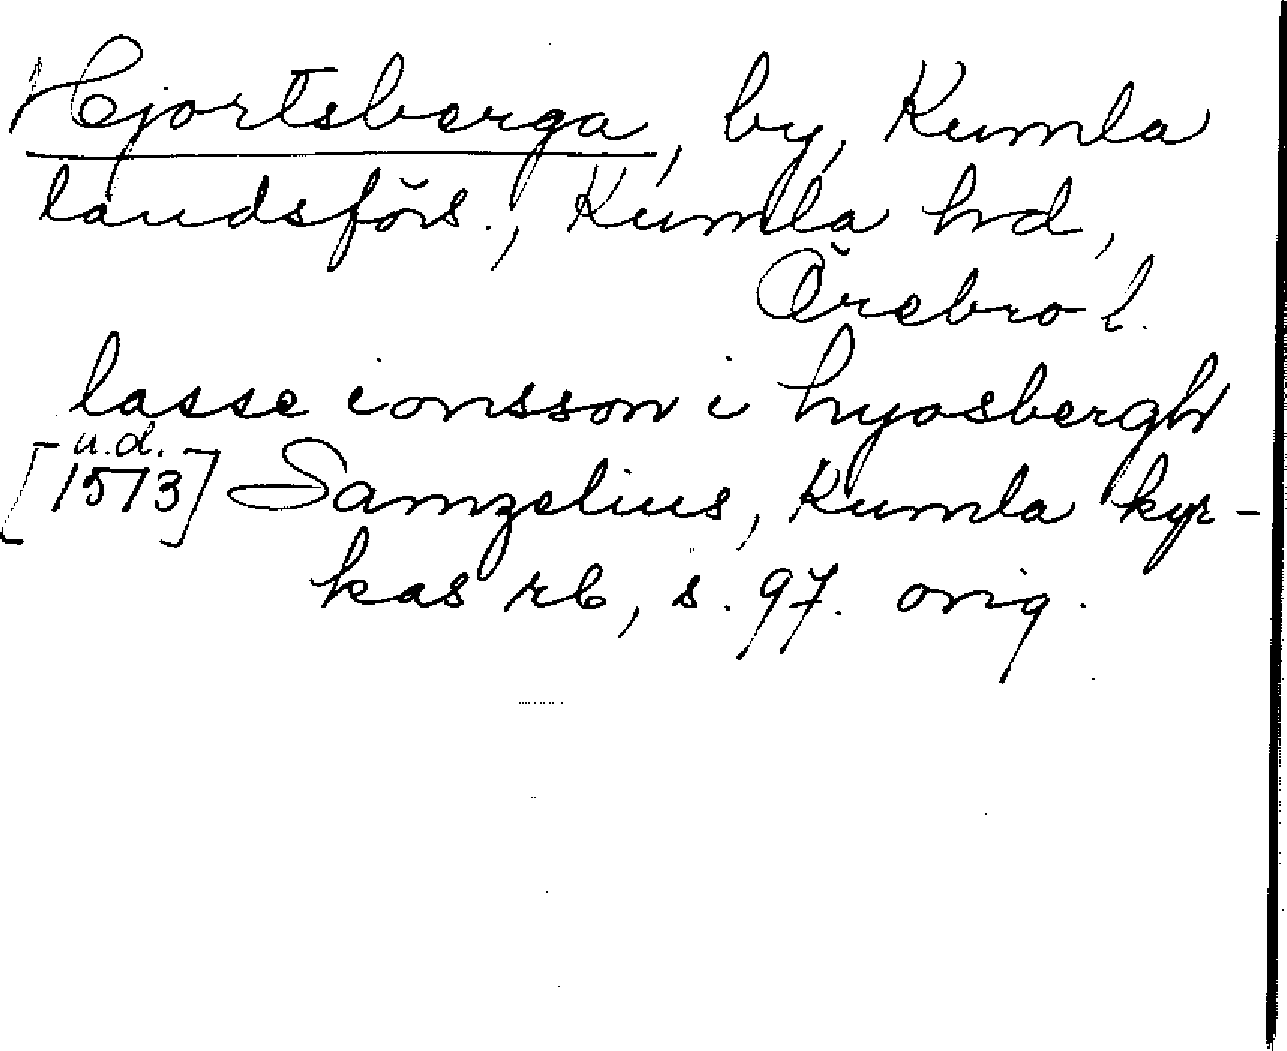 Hjortsberga, by, Kumla
landsförs., Kumla hd,
Örebro l.
lasse ionsson i hyosbergh
u.d.
[1573] Samzelius, Kumla kyr-
kas rb, s. 97. orig.